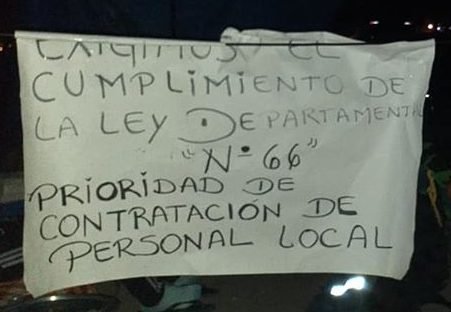 EXIGIMOS EL
CUMPLIMIENTO DE
LA LEY DEPARTAMENTAL
"Nº 66"
PRIORIDAD DE
CONTRATACIÓN DE
PERSONAL LOCAL